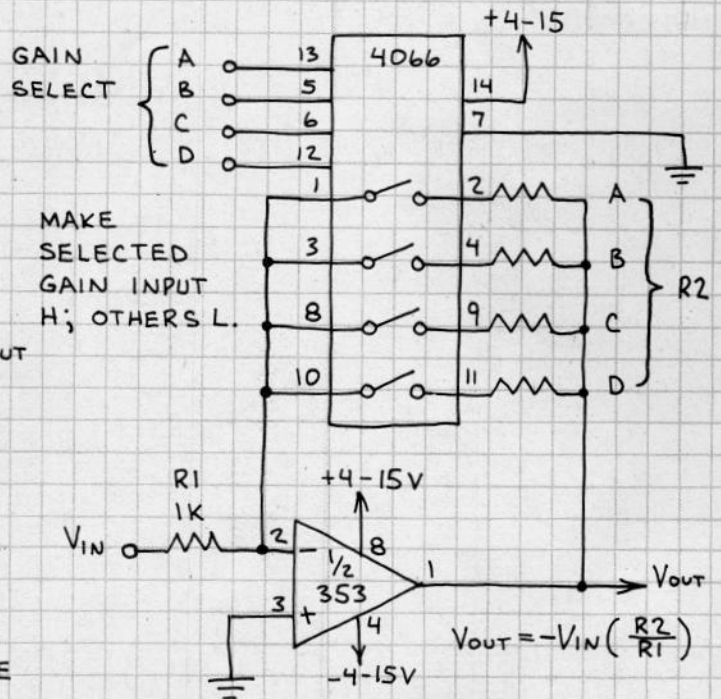 +4-15
GAIN
SELECT
A 13
B 5
C 6
D 12
4066
14
7
1 2 A
3 4 B
8 9 C
10 11 D
R2
MAKE
SELECTED
GAIN INPUT
H; OTHERS L.
UT
R1
1K
+4-15V
VIN
2 -
8
1/2
353
1
3 +
4
-4-15V
VOUT
VOUT = -VIN (R2/R1)
E